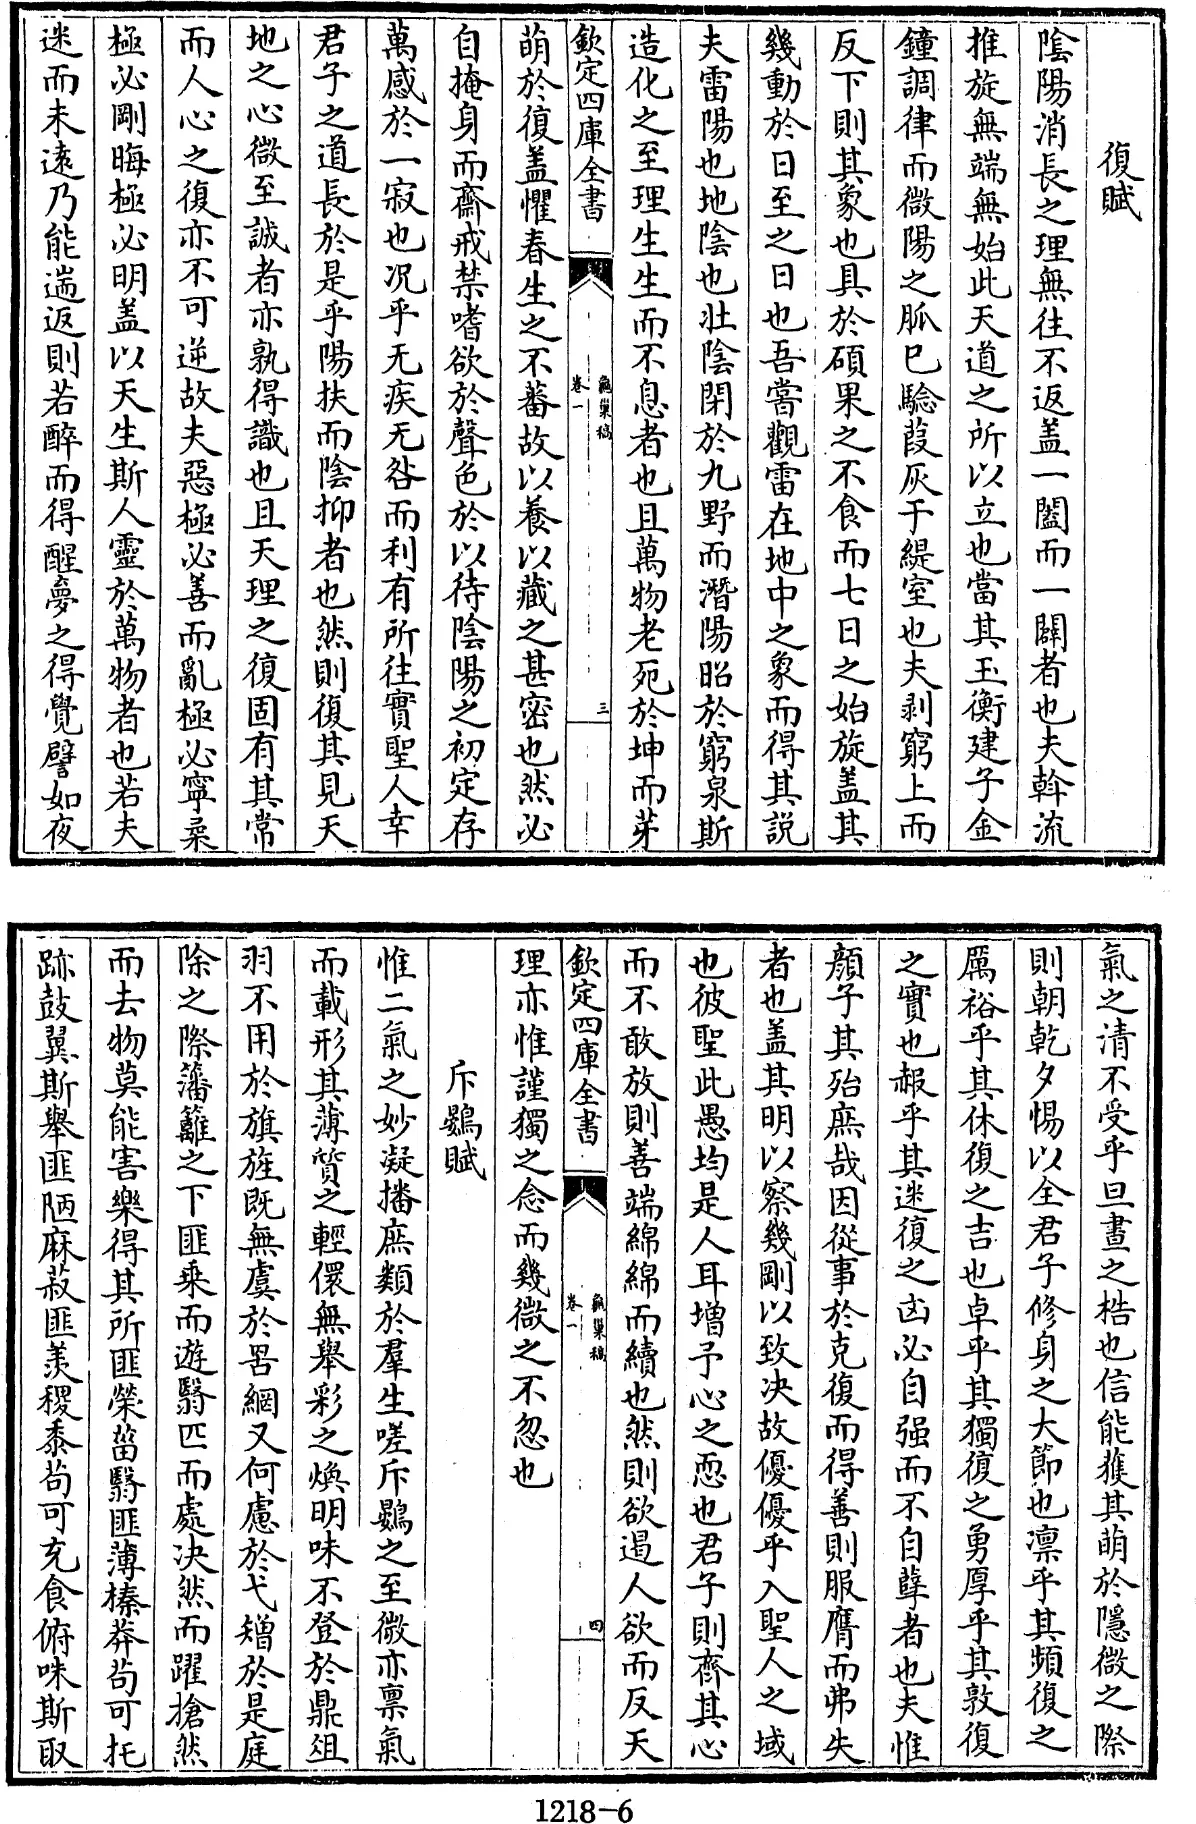 復賦
陰陽消長之理無往不返盖一闔而一闢者也夫斡流
推旋無端無始此天道之所以立也當其玉衡建子金
鐘調律而微陽之脈已驗葭灰于緹室也夫剥窮上而
反下則其象也具於碩果之不食而七日之始旋盖其
幾動於日至之日也吾嘗觀雷在地中之象而得其説
夫雷陽也地陰也壯陰閉於九野而潛陽昭於窮泉斯
造化之至理生生而不息者也且萬物老死於坤而芽
欽定四庫全書
龜巢稿
卷一
三
萌於復盖懼春生之不蕃故以養以藏之甚密也然必
自掩身而齋戒禁嗜欲於聲色於以待陰陽之初定存
萬感於一寂也况乎无疾无咎而利有所往實聖人幸
君子之道長於是乎陽扶而陰抑者也然則復其見天
地之心微至誠者亦孰得識也且天理之復固有其常
而人心之復亦不可逆故夫惡極必善而亂極必寧桑
極必剛晦極必明盖以天生斯人靈於萬物者也若夫
迷而未遠乃能遄返則若醉而得醒夢之得覺譬如夜
氣之清不受乎旦晝之梏也信能獲其萌於隱微之際
則朝乾夕惕以全君子修身之大節也凛乎其頻復之
厲裕乎其休復之吉也卓乎其獨復之勇厚乎其敦復
之實也赧乎其迷復之凶必自强而不自孽者也夫惟
顔子其殆庶哉因從事於克復而得善則服膺而弗失
者也盖其明以察幾剛以致决故優優乎入聖人之域
也彼聖此愚均是人耳增予心之恧也君子則齊其心
而不敢放則善端綿綿而續也然則欲遏人欲而反天
欽定四庫全書
龜巢稿
卷一
四
理亦惟謹獨之念而幾微之不忽也
斥鷃賦
惟二氣之妙凝播庶類於羣生嗟斥鷃之至微亦禀氣
而載形其薄質之輕儇無舉彩之煥明味不登於鼎俎
羽不用於旗旌既無虞於罟網又何慮於弋矰於是庭
除之際藩籬之下匪乘而遊翳匹而處决然而躍搶然
而去物莫能害樂得其所匪榮菑翳匪薄榛莽茍可托
跡鼓翼斯舉匪陋麻菽匪羡稷黍茍可充食俯咮斯取
1218-6